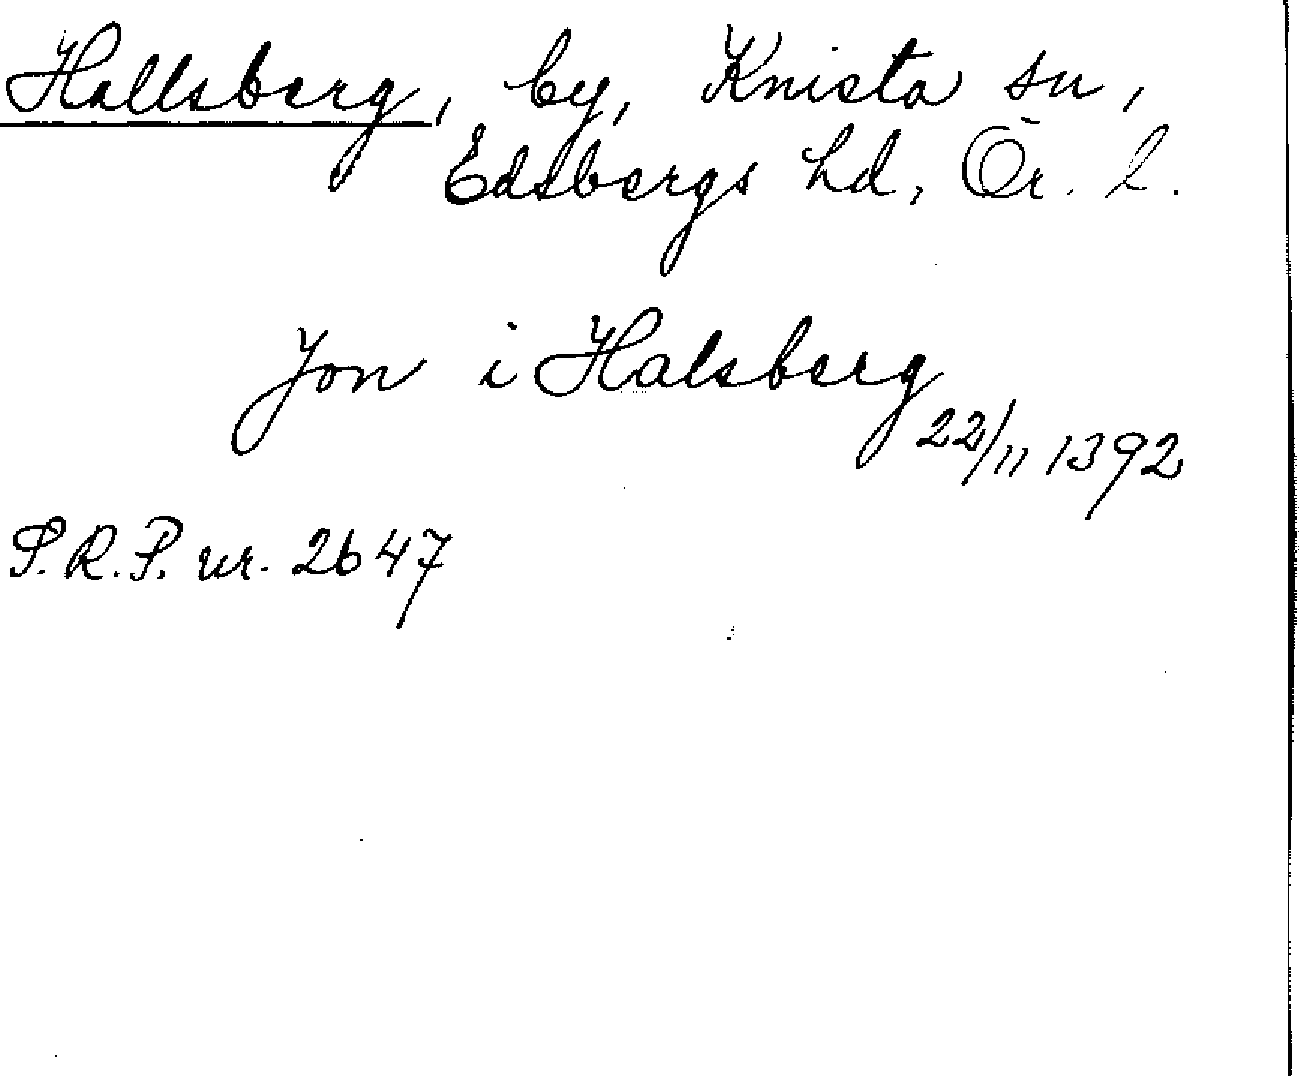 Hallsberg, by, Knista sn,
Edsbergs hd, Ör. l.
Jon i Halsberg
22/11 1392
S.R.P. nr. 2647